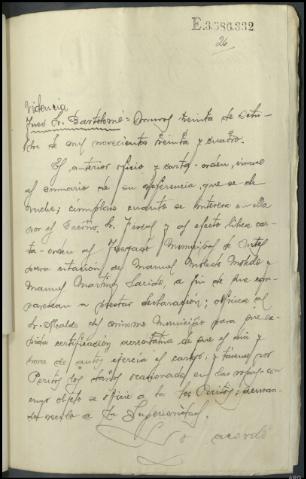 E.3.586.332
26
Videncia
Juez Sr. Bartolomé = treinta de Octu-
bre de mil novecientos treinta y cuatro.
El anterior oficio y carta-orden, únase
al sumario de su referencia, que se de
vuelve; cúmplase cuanto se interesa en ella
por el Excmo. Sr. Fiscal y al efecto líbrese car
ta-orden al Juzgado Municipal de
para citación de Manuel
Manuel Martínez Garrido, a fin de que com-
parezcan a prestar declaración; ofíciese al
Sr. Alcalde del mismo Municipio para que ex-
pida certificación acreditativa de que el día y
hora de autos ejercía el cargo; y tásense por
Peritos los daños ocasionados en las
cuyo objeto se oficie a la los Peritos;
do cuenta a la Superioridad.
Lo acordó